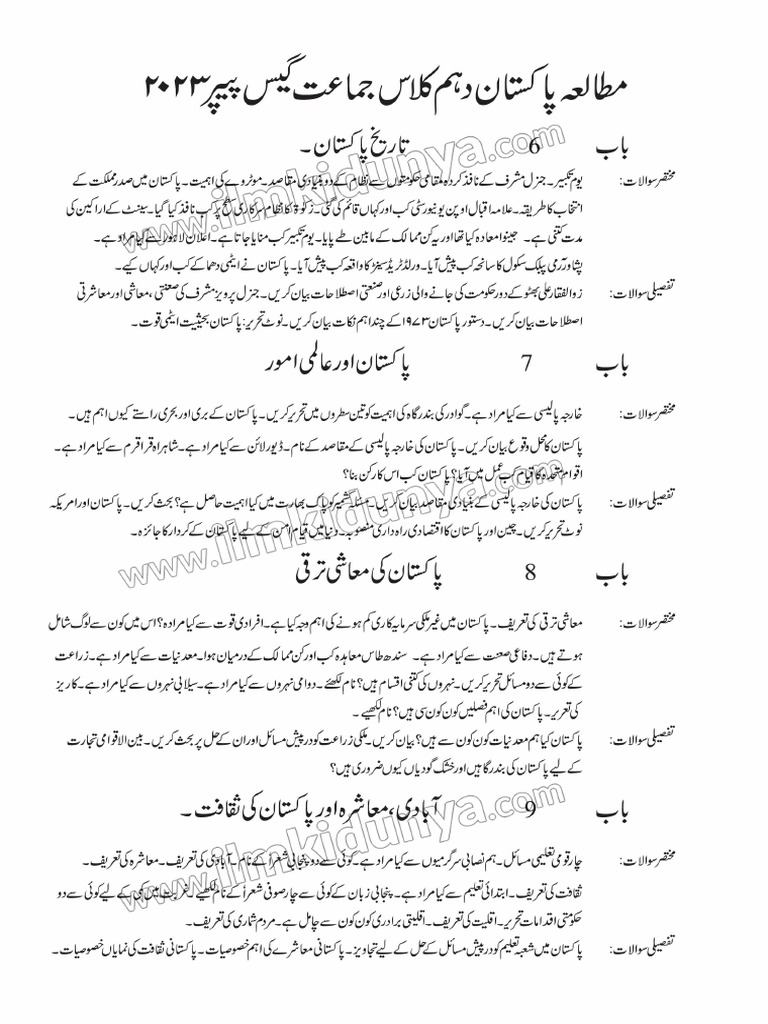 مطالعہ پاکستان دہم کلاس جماعت گیس پیپر ۲۰۲۳
باب 6 تاریخ پاکستان ۔
مختصر سوالات: یوم تکبیر ۔ جنرل مشرف کے نافذ کردہ مقامی حکومتوں سے نظام کے دو بنیادی مقاصد ۔ موٹروے کی اہمیت ۔ پاکستان میں صدر مملکت کے
انتخاب کا طریقہ ۔ علامہ اقبال اوپن یونیورسٹی کب اور کہاں قائم کی گئی ۔ زکوٰۃ کا نظام سرکاری سطح پر کب نافذ کیا گیا ۔ سینٹ کے اراکین کی
مدت کتنی ہے ۔ جینوا معاہدہ کیا تھا اور یہ کن ممالک کے مابین طے پایا ۔ یوم تکبیر کب منایا جاتا ہے ۔ اعلان لاہور سے کیا مراد ہے ۔
پشاور آرمی پبلک سکول کا سانحہ کب پیش آیا ۔ ورلڈ ٹریڈ سینٹر کا واقعہ کب پیش آیا ۔ پاکستان نے ایٹمی دھماکے کب اور کہاں کیے ۔
تفصیلی سوالات: زوالفقار علی بھٹو کے دور حکومت کی جانے والی زرعی اور صنعتی اصطلاحات بیان کریں ۔ جنرل پرویز مشرف کی صنعتی ، معاشی اور معاشرتی
اصطلاحات بیان کریں ۔ دستور پاکستان ۱۹۷۳ کے چند اہم نکات بیان کریں ۔ نوٹ تحریر: پاکستان بحیثیت ایٹمی قوت ۔
باب 7 پاکستان اور عالمی امور
مختصر سوالات: خارجہ پالیسی سے کیا مراد ہے ۔ گوادر کی بندرگاہ کی اہمیت کو تین سطروں میں تحریر کریں ۔ پاکستان کے بری اور بحری راستے کیوں اہم ہیں ۔
پاکستان کا محل وقوع بیان کریں ۔ پاکستان کی خارجہ پالیسی کے مقاصد کے نام ۔ ڈیورلائن سے کیا مراد ہے ۔ شاہراہ قراقرم سے کیا مراد ہے ۔
اقوام متحدہ کا قیام کب عمل میں آیا؟ پاکستان کب اس کا رکن بنا؟
تفصیلی سوالات: پاکستان کی خارجہ پالیسی کے بنیادی مقاصد بیان کریں ۔ مسئلہ کشمیر کو پاک بھارت میں کیا اہمیت حاصل ہے؟ بحث کریں ۔ پاکستان اور امریکہ
نوٹ تحریر کریں ۔ چین اور پاکستان کا اقتصادی راہ داری منصوبہ ۔ دنیا میں قیام امن کے لیے پاکستان کے کردار کا جائزہ ۔
باب 8 پاکستان کی معاشی ترقی
مختصر سوالات: معاشی ترقی کی تعریف ۔ پاکستان میں غیر ملکی سرمایہ کاری کم ہونے کی اہم وجہ کیا ہے ۔ افرادی قوت سے کیا مرادہ؟ اس میں کون سے لوگ شامل
ہوتے ہیں ۔ دفاعی صنعت سے کیا مراد ہے ۔ سندھ طاس معاہدہ کب اور کن ممالک کے درمیان ہوا ۔ معدنیات سے کیا مراد ہے ۔ زراعت
کے کوئی سے دو مسائل تحریر کریں ۔ نہروں کی کتنی اقسام ہیں؟ نام لکھئے ۔ دوامی نہروں سے کیا مراد ہے ۔ سیلابی نہروں سے کیا مراد ہے ۔ کاریز
کی تعریر ۔ پاکستان کی اہم فصلیں کون کون سی ہیں؟ نام لکھیے ۔
تفصیلی سوالات: پاکستان کیا ہم معدنیات کون کون سے ہیں؟ بیان کریں ۔ ملکی زراعت کو درپیش مسائل اور ان کے حل پر بحث کریں ۔ بین الاقوامی تجارت
کے لیے پاکستان کی بندرگاہیں اور خشک گودیاں کیوں ضروری ہیں؟
باب 9 آبادی ، معاشرہ اور پاکستان کی ثقافت ۔
مختصر سوالات: چار قومی تعلیمی مسائل ۔ ہم نصابی سرگرمیوں سے کیا مراد ہے ۔ کوئی سے دو پنجابی شعراٗ کے نام ۔ آبادی کی تعریف ۔ معاشرہ کی تعریف ۔
ثقافت کی تعریف ۔ ابتدائی تعلیم سے کیا مراد ہے ۔ پنجابی زبان کے کوئی سے چار صوفی شعراٗ کے نام لکھیے ۔ غربت میں کمی کے لیے کوئی سے دو
حکومتی اقدامات تحریر ۔ اقلیت کی تعریف ۔ اقلیتی برادری کون کون سے چامل ہے ۔ مردم شماری کی تعریف ۔
تفصیلی سوالات: پاکستان میں شعبہ تعلیم کو درپیش مسائل کے حل کے لیے تجاویز ۔ پاکستانی معاشرے کی اہم خصوصیات ۔ پاکستانی ثقافت کی نمایاں خصوصیات ۔
www.ilmkidunya.com
www.ilmkidunya.com
www.ilmkidunya.com